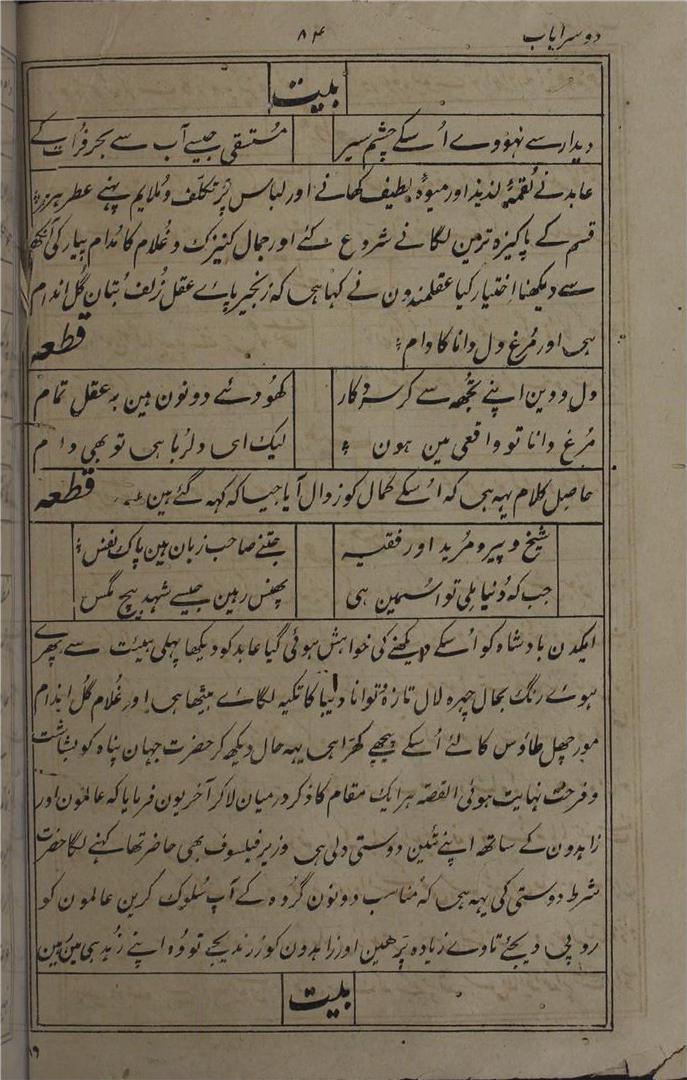 دوسرا باب
۸۴
بیت
دیدار سے نہووے اُسکے چشم سیر مُستسقی جیسے آب سے بحر فُرات کے
عابد نے لُقمۂ لذیذ اور میوۂ لطیف کھانے اور لباس پُرتکلّف و مُلایم پہنے عطر ہر
قسم کے پاکیزہ ترین لگانے شروع کئے اور جمال کنیزک و غُلام کا مُدام پیار کی آنکھ
سے دیکھنا اختیار کیا عقلمندون نے کہا ہی کہ زنجیر پاے عقل زُلف بُتان گُل اندام
ہی اور مُرغ دل دانا کا دام قطعہ
دل و دین اپنے تُجھ سے کر سروکار کھودئے دونون مین بہ عقل تمام
مُرغ دانا تو واقعی مین ہون لیک ای دلرُبا ہی تو بھی دام
حاصل کلام یہہ ہی کہ اُسکے کمال کو زوال آیا جیسا کہ کہہ گئے ہین قطعہ
شیخ و پیر و مُرید اور فقیہ جتنے صاحب زبان ہین پاک نفس
جب کہ دُنیا ملی تو اُسمین ہی پھنس رہین جیسے شہد بیچ مگس
ایکدن بادشاہ کو اُسکے دیکھنے کی خواہش ہوئی گیا عابد کو دیکھا پہلی ہیئت سے پھرے
ہوے رنگ بحال چہرہ لال تازہ و توانا دیبا کا تکیہ لگاے بیٹھا ہی اور غُلام گُل اندام
مورچھل طاؤس کا لئے اُسکے پیچھے کھڑا ہی یہہ حال دیکھ کر حضرت جہان پناہ کو بشاشت
و فرحت نہایت ہوئی القصہ ہر ایک مقام کا ذکر درمیان لا کر آخر یون فرمایا کہ عالمون اور
زاہدون کے ساتھ اپنے تئین دوستی دلی ہی وزیر فیلسوف بھی حاضر تھا کہنے لگا حضرت
شرط دوستی کی یہہ ہی کہ مُناسب دونون گروہ کے آپ سُلوک کرین عالمون کو
روپی دیجئے تا وے زیادہ پڑھین اور زاہدون کو زر ندیجے تو وُہ اپنے زُہد ہی مین رہین
بیت